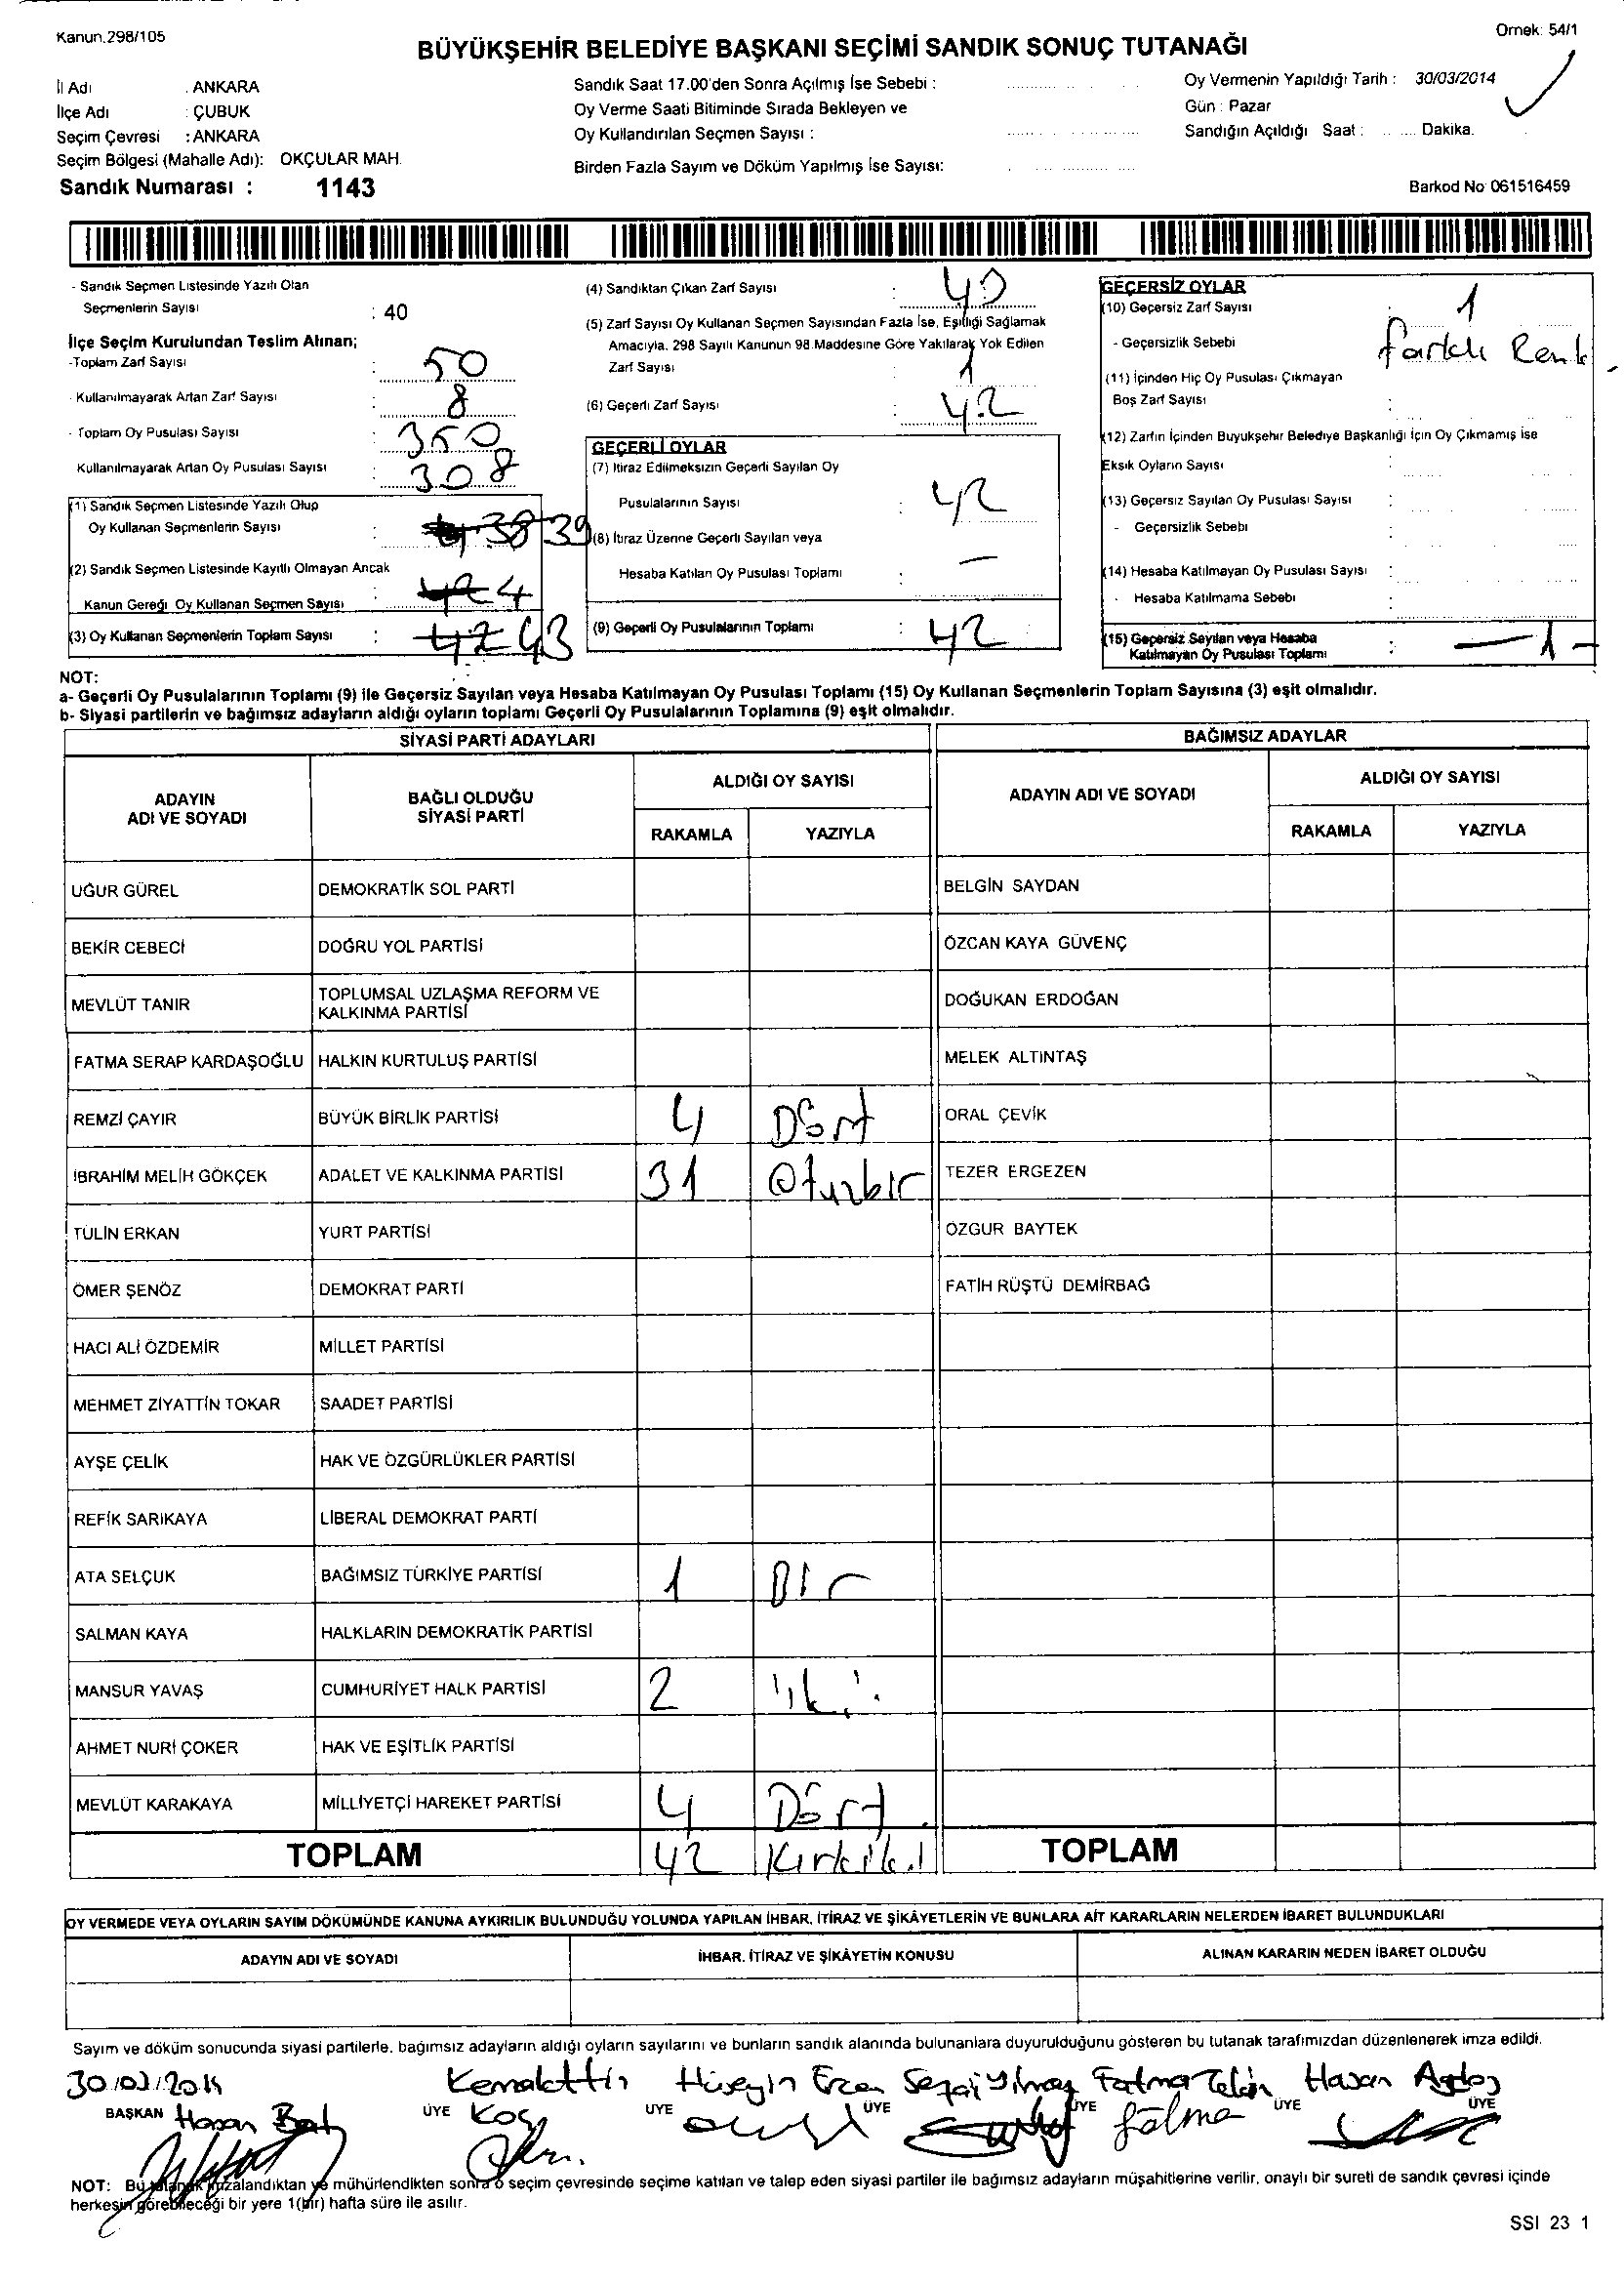 Kanun.298/105
Örnek: 54/1
BÜYÜKŞEHİR BELEDİYE BAŞKANI SEÇİMİ SANDIK SONUÇ TUTANAĞI
İl Adı : ANKARA
İlçe Adı : ÇUBUK
Seçim Çevresi : ANKARA
Seçim Bölgesi (Mahalle Adı): OKÇULAR MAH.
Sandık Numarası : 1143
Sandık Saat 17.00'den Sonra Açılmış İse Sebebi :
Oy Verme Saati Bitiminde Sırada Bekleyen ve
Oy Kullandırılan Seçmen Sayısı :
Birden Fazla Sayım ve Döküm Yapılmış İse Sayısı:
Oy Vermenin Yapıldığı Tarih : 30/03/2014
Gün : Pazar
Sandığın Açıldığı Saat : ...... Dakika.
Barkod No 061516459
- Sandık Seçmen Listesinde Yazılı Olan
Seçmenlerin Sayısı : 40
İlçe Seçim Kurulundan Teslim Alınan;
-Toplam Zarf Sayısı : 50
Kullanılmayarak Artan Zarf Sayısı : 8
- Toplam Oy Pusulası Sayısı : 350
Kullanılmayarak Artan Oy Pusulası Sayısı : 308
(1) Sandık Seçmen Listesinde Yazılı Olup
Oy Kullanan Seçmenlerin Sayısı : 38 39
(2) Sandık Seçmen Listesinde Kayıtlı Olmayan Ancak
Kanun Gereği Oy Kullanan Seçmen Sayısı : 4
(3) Oy Kullanan Seçmenlerin Toplam Sayısı : 42 43
(4) Sandıktan Çıkan Zarf Sayısı :
(5) Zarf Sayısı Oy Kullanan Seçmen Sayısından Fazla İse, Eşitliği Sağlamak
Amacıyla, 298 Sayılı Kanunun 98.Maddesine Göre Yakılarak Yok Edilen
Zarf Sayısı 1
(6) Geçerli Zarf Sayısı : 42
GEÇERLİ OYLAR
(7) İtiraz Edilmeksizin Geçerli Sayılan Oy
Pusulalarının Sayısı : 42
(8) İtiraz Üzerine Geçerli Sayılan veya
Hesaba Katılan Oy Pusulası Toplamı : —
(9) Geçerli Oy Pusulalarının Toplamı : 42
GEÇERSİZ OYLAR
(10) Geçersiz Zarf Sayısı : 1
- Geçersizlik Sebebi farklı Renk
(11) İçinden Hiç Oy Pusulası Çıkmayan
Boş Zarf Sayısı :
(12) Zarfın İçinden Büyükşehir Belediye Başkanlığı İçin Oy Çıkmamış ise
Eksik Oyların Sayısı :
(13) Geçersiz Sayılan Oy Pusulası Sayısı :
- Geçersizlik Sebebi :
(14) Hesaba Katılmayan Oy Pusulası Sayısı :
- Hesaba Katılmama Sebebi :
(15) Geçersiz Sayılan veya Hesaba
Katılmayan Oy Pusulası Toplamı : — 1 -
NOT:
a- Geçerli Oy Pusulalarının Toplamı (9) ile Geçersiz Sayılan veya Hesaba Katılmayan Oy Pusulası Toplamı (15) Oy Kullanan Seçmenlerin Toplam Sayısına (3) eşit olmalıdır.
b- Siyasi partilerin ve bağımsız adayların aldığı oyların toplamı Geçerli Oy Pusulalarının Toplamına (9) eşit olmalıdır.
SİYASİ PARTİ ADAYLARI BAĞIMSIZ ADAYLAR
ADAYIN ADI VE SOYADI BAĞLI OLDUĞU SİYASİ PARTİ ALDIĞI OY SAYISI ADAYIN ADI VE SOYADI ALDIĞI OY SAYISI
RAKAMLA YAZIYLA RAKAMLA YAZIYLA
UĞUR GÜREL DEMOKRATİK SOL PARTİ BELGİN SAYDAN
BEKİR CEBECİ DOĞRU YOL PARTİSİ ÖZCAN KAYA GÜVENÇ
MEVLÜT TANIR TOPLUMSAL UZLAŞMA REFORM VE KALKINMA PARTİSİ DOĞUKAN ERDOĞAN
FATMA SERAP KARDAŞOĞLU HALKIN KURTULUŞ PARTİSİ MELEK ALTINTAŞ
REMZİ ÇAYIR BÜYÜK BİRLİK PARTİSİ 4 Dört ORAL ÇEVİK
İBRAHİM MELİH GÖKÇEK ADALET VE KALKINMA PARTİSİ 31 Oturzbir TEZER ERGEZEN
TÜLİN ERKAN YURT PARTİSİ ÖZGÜR BAYTEK
ÖMER ŞENÖZ DEMOKRAT PARTİ FATİH RÜŞTÜ DEMİRBAĞ
HACI ALİ ÖZDEMİR MİLLET PARTİSİ
MEHMET ZİYATTİN TOKAR SAADET PARTİSİ
AYŞE ÇELİK HAK VE ÖZGÜRLÜKLER PARTİSİ
REFİK SARIKAYA LİBERAL DEMOKRAT PARTİ
ATA SELÇUK BAĞIMSIZ TÜRKİYE PARTİSİ 1 Bir
SALMAN KAYA HALKLARIN DEMOKRATİK PARTİSİ
MANSUR YAVAŞ CUMHURİYET HALK PARTİSİ 2 iki
AHMET NURİ ÇOKER HAK VE EŞİTLİK PARTİSİ
MEVLÜT KARAKAYA MİLLİYETÇİ HAREKET PARTİSİ 4 Dört
TOPLAM 42 Kırkiki TOPLAM
OY VERMEDE VEYA OYLARIN SAYIM DÖKÜMÜNDE KANUNA AYKIRILIK BULUNDUĞU YOLUNDA YAPILAN İHBAR, İTİRAZ VE ŞİKÂYETLERİN VE BUNLARA AİT KARARLARIN NELERDEN İBARET BULUNDUKLARI
ADAYIN ADI VE SOYADI İHBAR, İTİRAZ VE ŞİKÂYETİN KONUSU ALINAN KARARIN NEDEN İBARET OLDUĞU
Sayım ve döküm sonucunda siyasi partilerle, bağımsız adayların aldığı oyların sayılarını ve bunların sandık alanında bulunanlara duyurulduğunu gösteren bu tutanak tarafımızdan düzenlenerek imza edildi.
30/03/2014 Kemalettin Hüseyin Ercan Sezai Yılmaz Fatma Hasan
BAŞKAN Hasan ÜYE Koç ÜYE ÜYE ÜYE fatma ÜYE ÜYE
NOT: Bu tutanak imzalandıktan ve mühürlendikten sonra o seçim çevresinde seçime katılan ve talep eden siyasi partiler ile bağımsız adayların müşahitlerine verilir, onaylı bir sureti de sandık çevresi içinde
herkesin görebileceği bir yere 1(bir) hafta süre ile asılır.
SSI 23 1